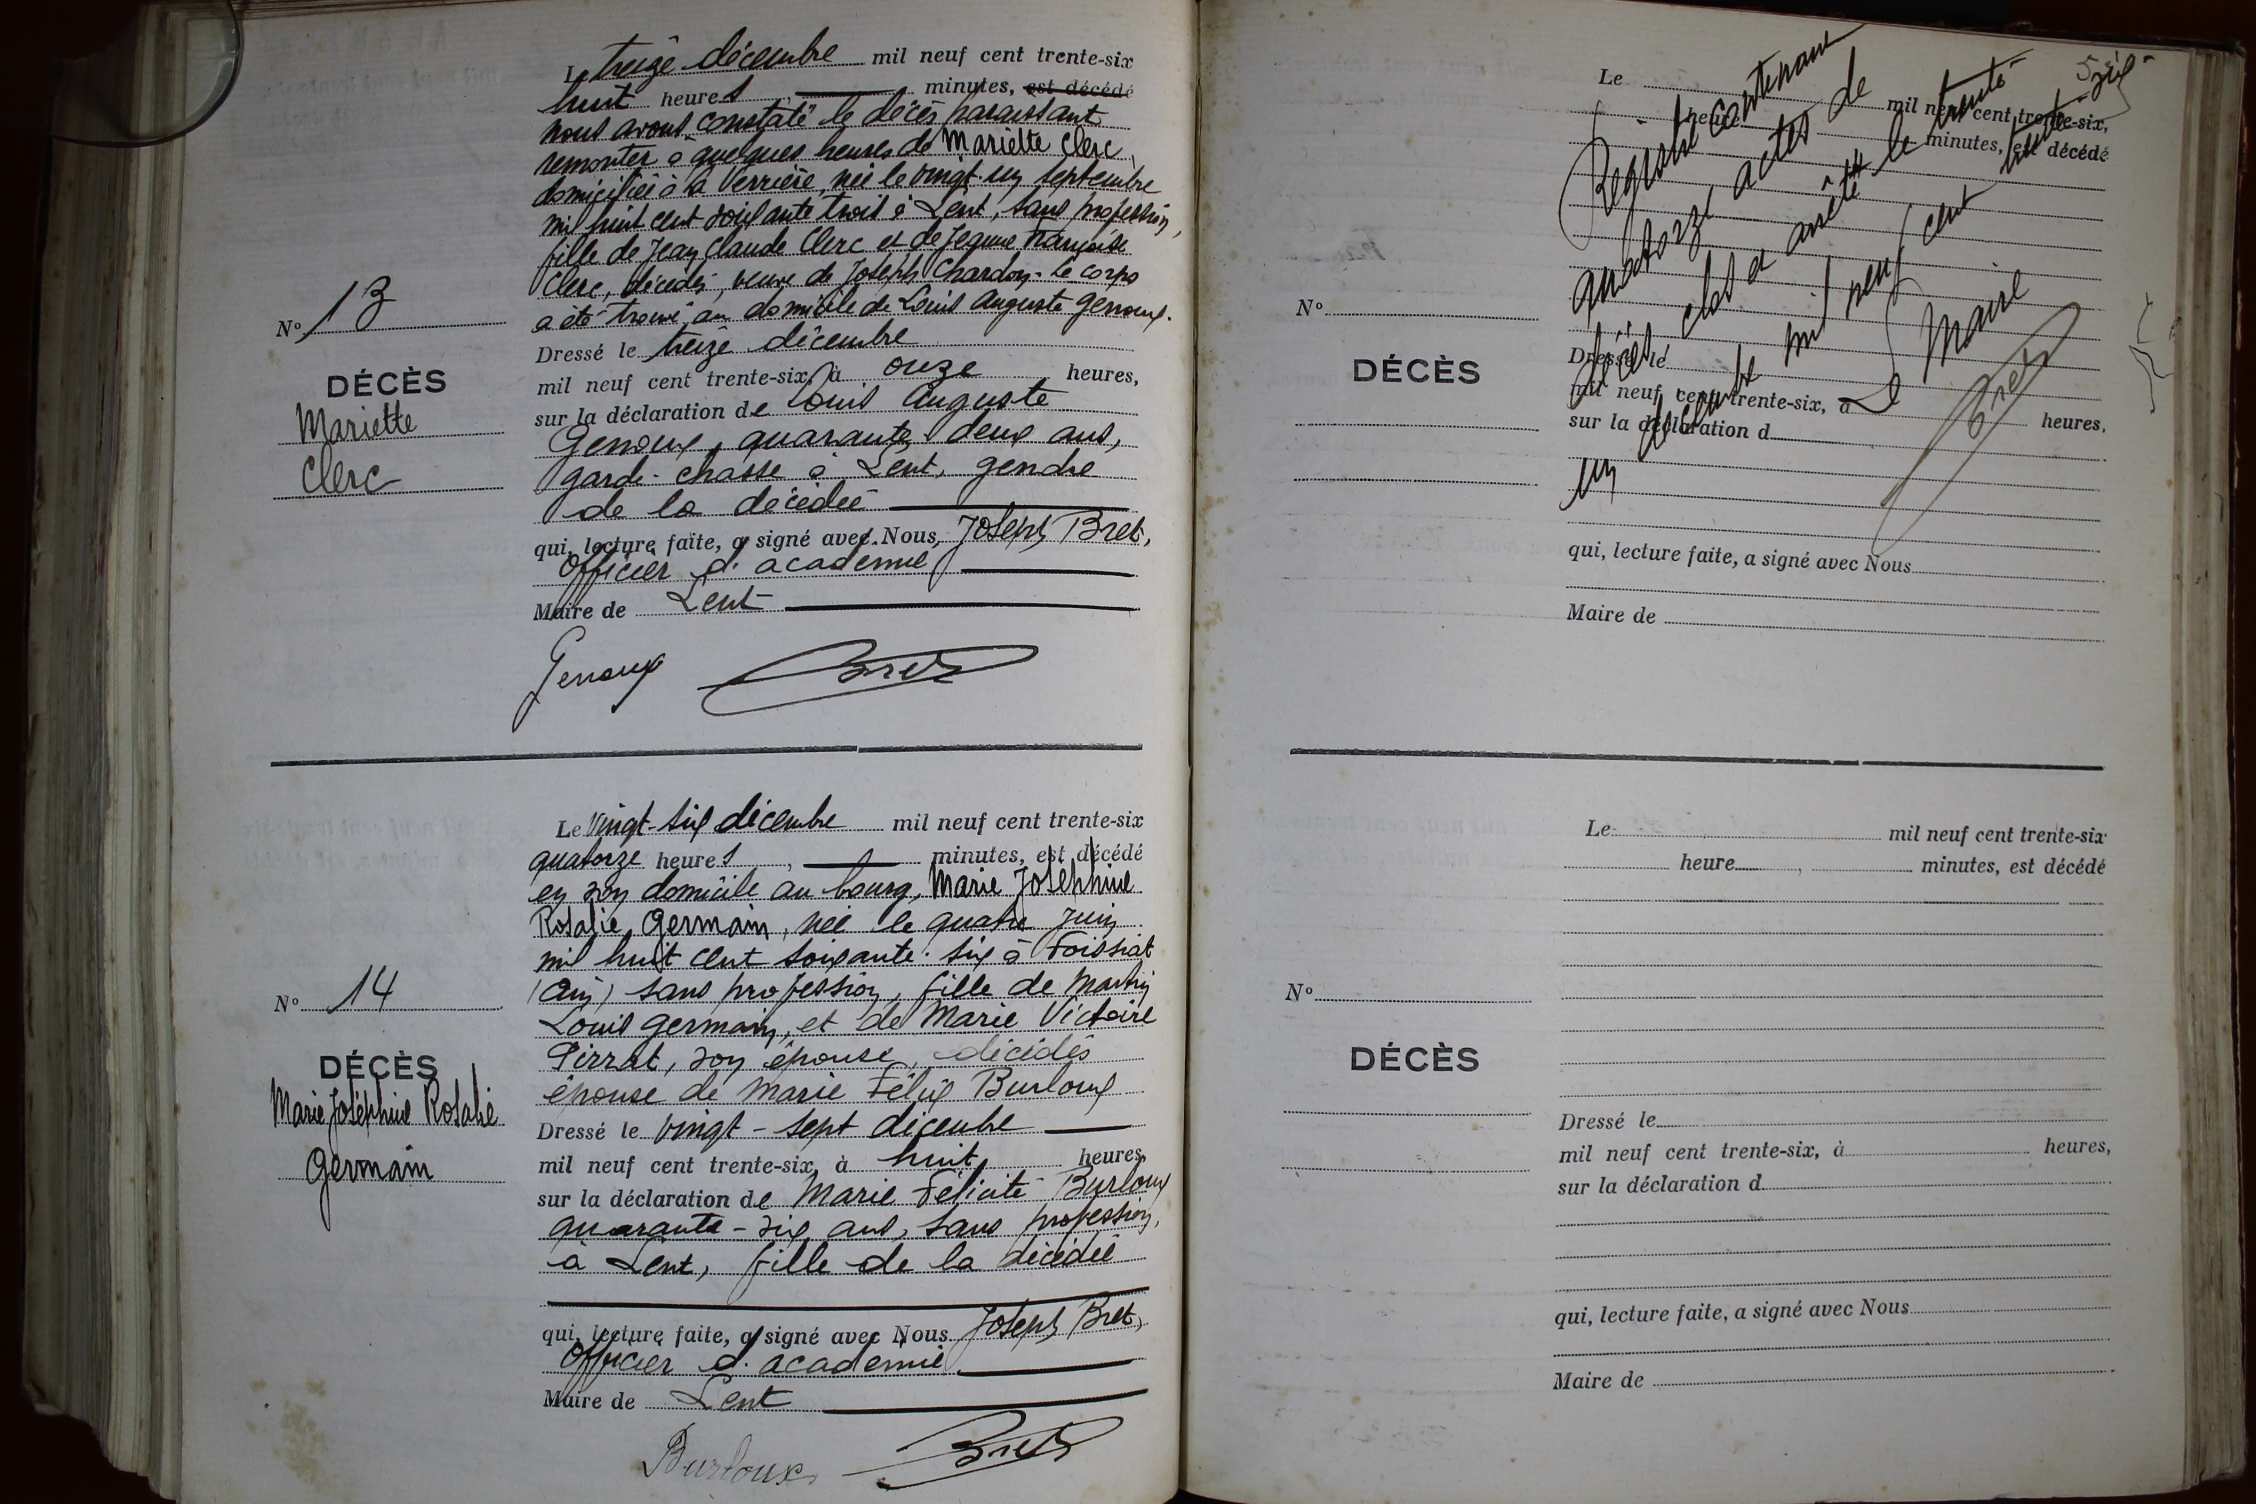 Le treize décembre mil neuf cent trente-six
huit heures minutes, est décédé
nous avons constaté le décès paraissant
remonter à quelques heures de Mariette Clerc,
domiciliée à la Verrière, née le vingt-un septembre
mil huit cent soixante trois à Lent, sans profession,
fille de Jean Claude Clerc et de Jeanne Françoise
Clerc, décédés, veuve de Joseph Chardon. Le corps
a été trouvé au domicile de Louis Auguste Genoux.
N° 13
DÉCÈS
Mariette
Clerc
Dressé le treize décembre
mil neuf cent trente-six, à onze heures,
sur la déclaration de Louis Auguste
Genoux, quarante deux ans,
garde-chasse à Lent, gendre
de la décédée
qui, lecture faite, a signé avec Nous, Joseph Bret,
Officier d'académie
Maire de Lent
Genoux Bret
Le vingt-six décembre mil neuf cent trente-six
quatorze heures, minutes, est décédé
en son domicile au bourg, Marie Joséphine
Rosalie Germain, née le quatre juin
mil huit cent soixante-six à Foissiat
(Ain) sans profession, fille de Martin
Louis Germain, et de Marie Victoire
Pirrat, son épouse, décédés
épouse de Marie Félix Burloux
N° 14
DÉCÈS
Marie Joséphine Rosalie
Germain
Dressé le vingt-sept décembre
mil neuf cent trente-six, à huit heures,
sur la déclaration de Marie Félicité Burloux
quarante-six ans, sans profession,
à Lent, fille de la décédée
qui, lecture faite, a signé avec Nous Joseph Bret,
Officier d'académie
Maire de Lent
Burloux Bret
Le mil neuf cent trente-six,
heure minutes, est décédé
Registre contenant
quatorze actes de
décès, clos et arrêté le trente
un décembre mil neuf cent trente-six
Le Maire
Bret
N°
DÉCÈS
Dressé le
mil neuf cent trente-six, à heures,
sur la déclaration d
qui, lecture faite, a signé avec Nous
Maire de
Le mil neuf cent trente-six
heure, minutes, est décédé
N°
DÉCÈS
Dressé le
mil neuf cent trente-six, à heures,
sur la déclaration d
qui, lecture faite, a signé avec Nous
Maire de